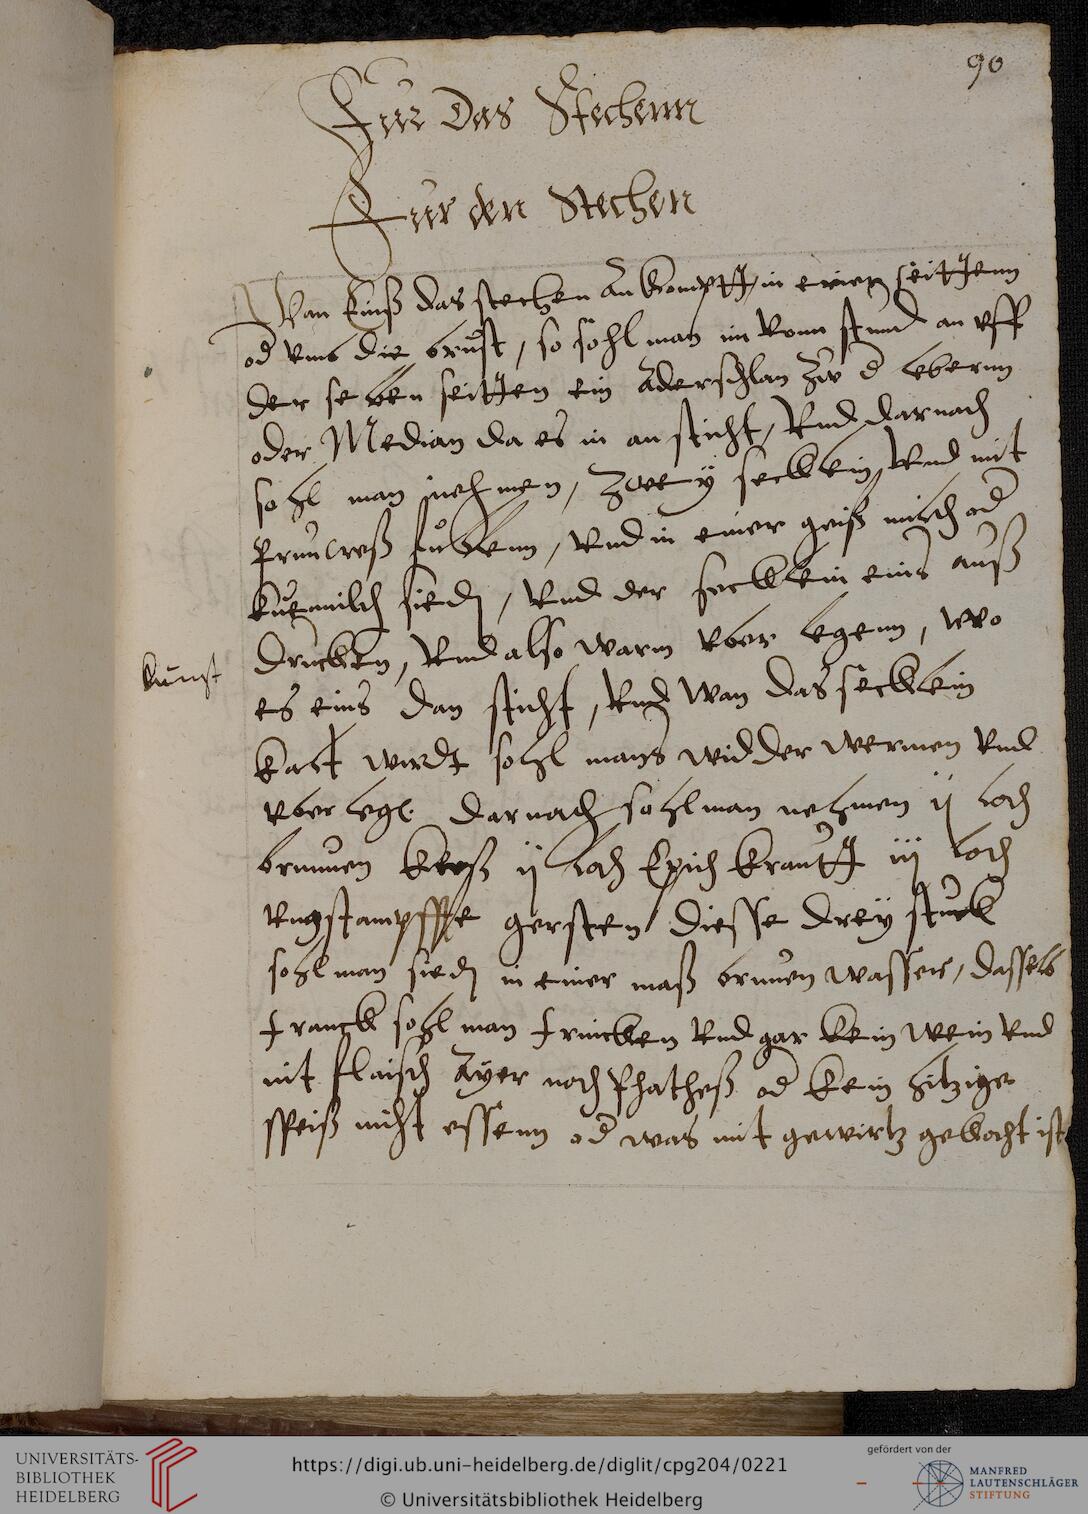 90
Fur Das Stechenn
Fur den Stechen
Wan Einß das stechen Ankompt in einer seittenn
od vmb die brust, so sohl man im vonn stund an vff
der selben seitten ein Aderschlan zu d lebernn
oder Median da es in an sticht, Vnd darnach
sohl man nehmen, zwey secklein, Vnd mit
Prunkreß fullenn, Vnd in einer geiß milch od
kuemilch sieden, Vnd der secklein eins auß
drucken, Vnd also warm vber legenn, wo
kunst
es eins dan sticht, Vnd Wan das secklein
kalt wirdt sohl mans widder wermen Vnd
vber legen darnach sohl man nehmen ij loch
brunnen kreß ij loch Epich krautt iij loch
gersten diesse drey stuck
sohl man sieden in einer maß brunen wasser, dasselb
tranck sohl man trincken Vnd gar kein wein Vnd
nit flaisch Ayer noch od kein hitzige
speiß nicht essenn od was mit gewirtz gekocht ist
UNIVERSITÄTS-
BIBLIOTHEK
HEIDELBERG
https://digi.ub.uni-heidelberg.de/diglit/cpg204/0221
© Universitätsbibliothek Heidelberg
gefördert von der
MANFRED
LAUTENSCHLÄGER
STIFTUNG